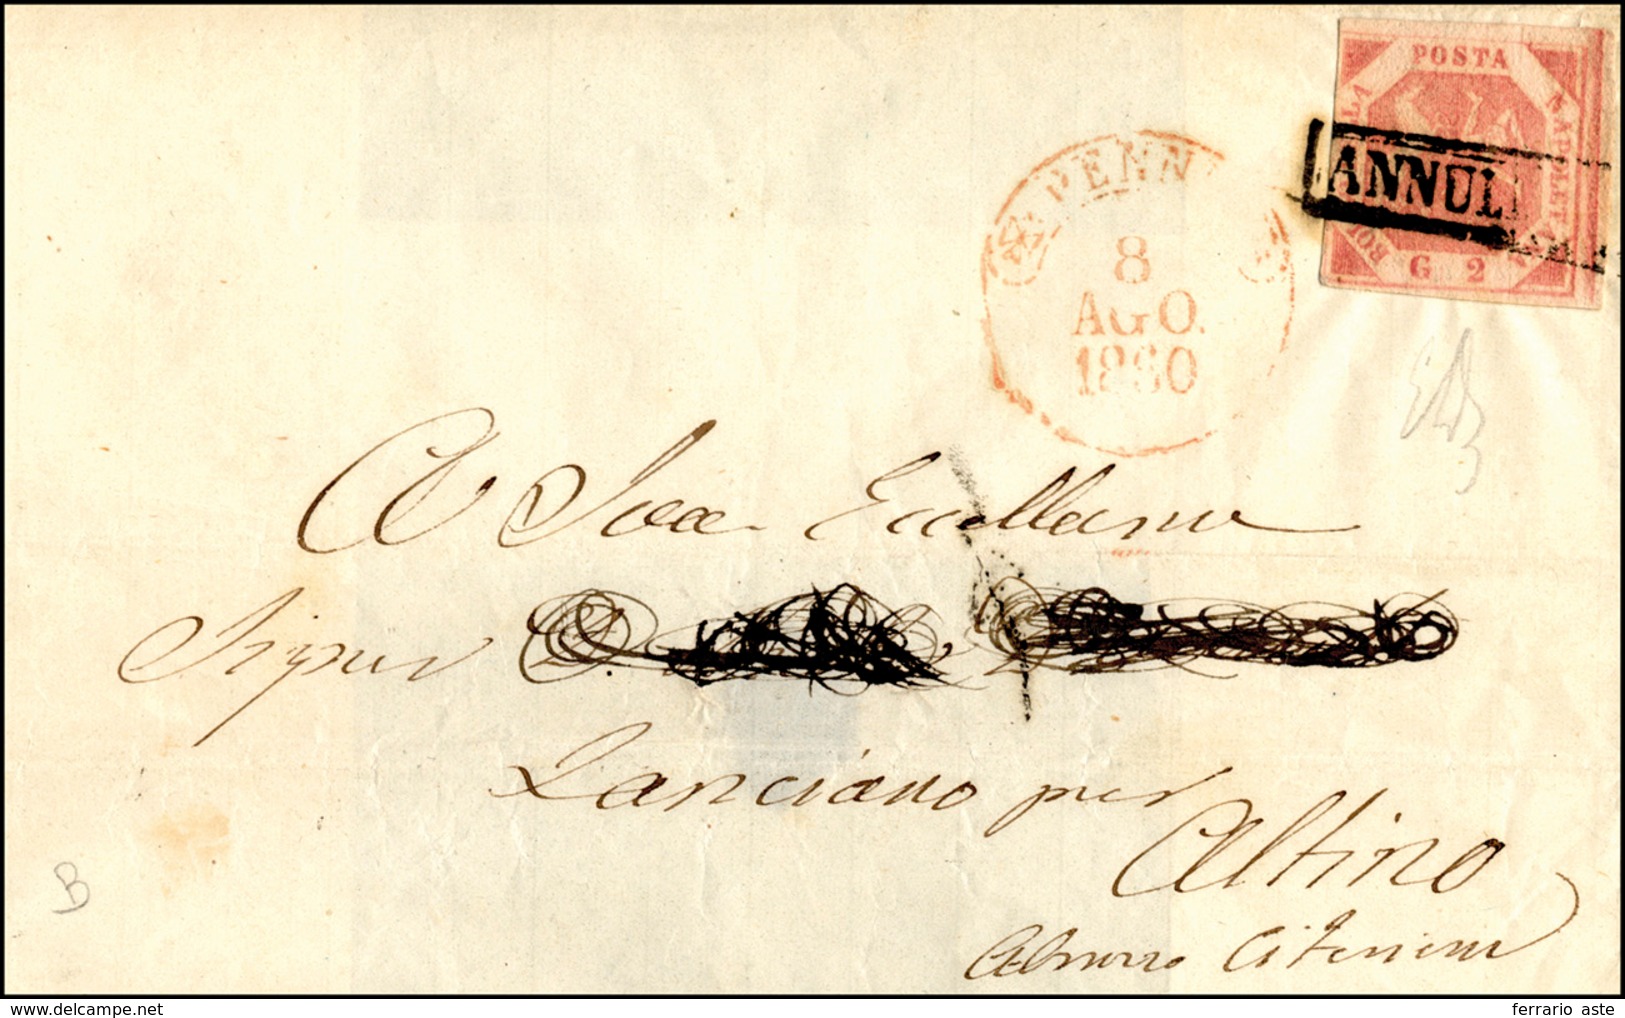 POSTA
NAPOLETANA
BOLLO
G 2
ANNUL
PENN
8
AGO.
1860
A Sua Eccellenza
Signor
Lanciano per
Altino
Abruzzo Citeriore
B
ferrario aste